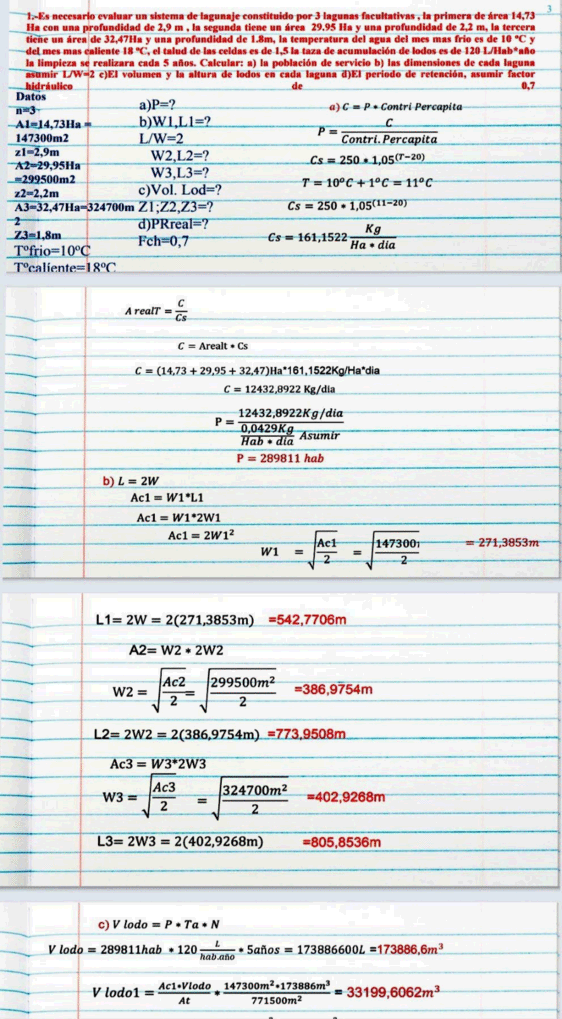 3
1.-Es necesario evaluar un sistema de lagunaje constituido por 3 lagunas facultativas , la primera de área 14,73
Ha con una profundidad de 2,9 m , la segunda tiene un área 29.95 Ha y una profundidad de 2,2 m, la tercera
tiene un área de 32,47Ha y una profundidad de 1.8m, la temperatura del agua del mes mas frio es de 10 °C y
del mes mas caliente 18 °C, el talud de las celdas es de 1,5 la taza de acumulación de lodos es de 120 L/Hab*año
la limpieza se realizara cada 5 años. Calcular: a) la población de servicio b) las dimensiones de cada laguna
asumir L/W=2 c)El volumen y la altura de lodos en cada laguna d)El periodo de retención, asumir factor
hidráulico de 0,7
Datos
n=3
A1=14,73Ha =
147300m2
z1=2,9m
A2=29,95Ha
=299500m2
z2=2,2m
A3=32,47Ha=324700m
2
Z3=1,8m
T°frio=10°C
T°caliente=18°C
a)P=?
b)W1,L1=?
L/W=2
W2,L2=?
W3,L3=?
c)Vol. Lod=?
Z1;Z2,Z3=?
d)PRreal=?
Fch=0,7
a) C = P * Contri Percapita
P = C / Contri. Percapita
Cs = 250 * 1,05^(T−20)
T = 10°C + 1°C = 11°C
Cs = 250 * 1,05^(11−20)
Cs = 161,1522 Kg / Ha * dia
A realT = C / Cs
C = Arealt * Cs
C = (14,73 + 29,95 + 32,47)Ha*161,1522Kg/Ha*dia
C = 12432,8922 Kg/dia
P = 12432,8922Kg/dia / 0,0429Kg / Hab * dia Asumir
P = 289811 hab
b) L = 2W
Ac1 = W1*L1
Ac1 = W1*2W1
Ac1 = 2W1²
W1 = √(Ac1 / 2) = √(147300 / 2) = 271,3853m
L1= 2W = 2(271,3853m) =542,7706m
A2= W2 * 2W2
W2 = √(Ac2 / 2) = √(299500m² / 2) =386,9754m
L2= 2W2 = 2(386,9754m) =773,9508m
Ac3 = W3*2W3
W3 = √(Ac3 / 2) = √(324700m² / 2) =402,9268m
L3= 2W3 = 2(402,9268m) =805,8536m
c) V lodo = P * Ta * N
V lodo = 289811hab * 120 L / hab.año * 5años = 173886600L =173886,6m³
V lodo1 = Ac1*Vlodo / At * 147300m²*173886m³ / 771500m² = 33199,6062m³